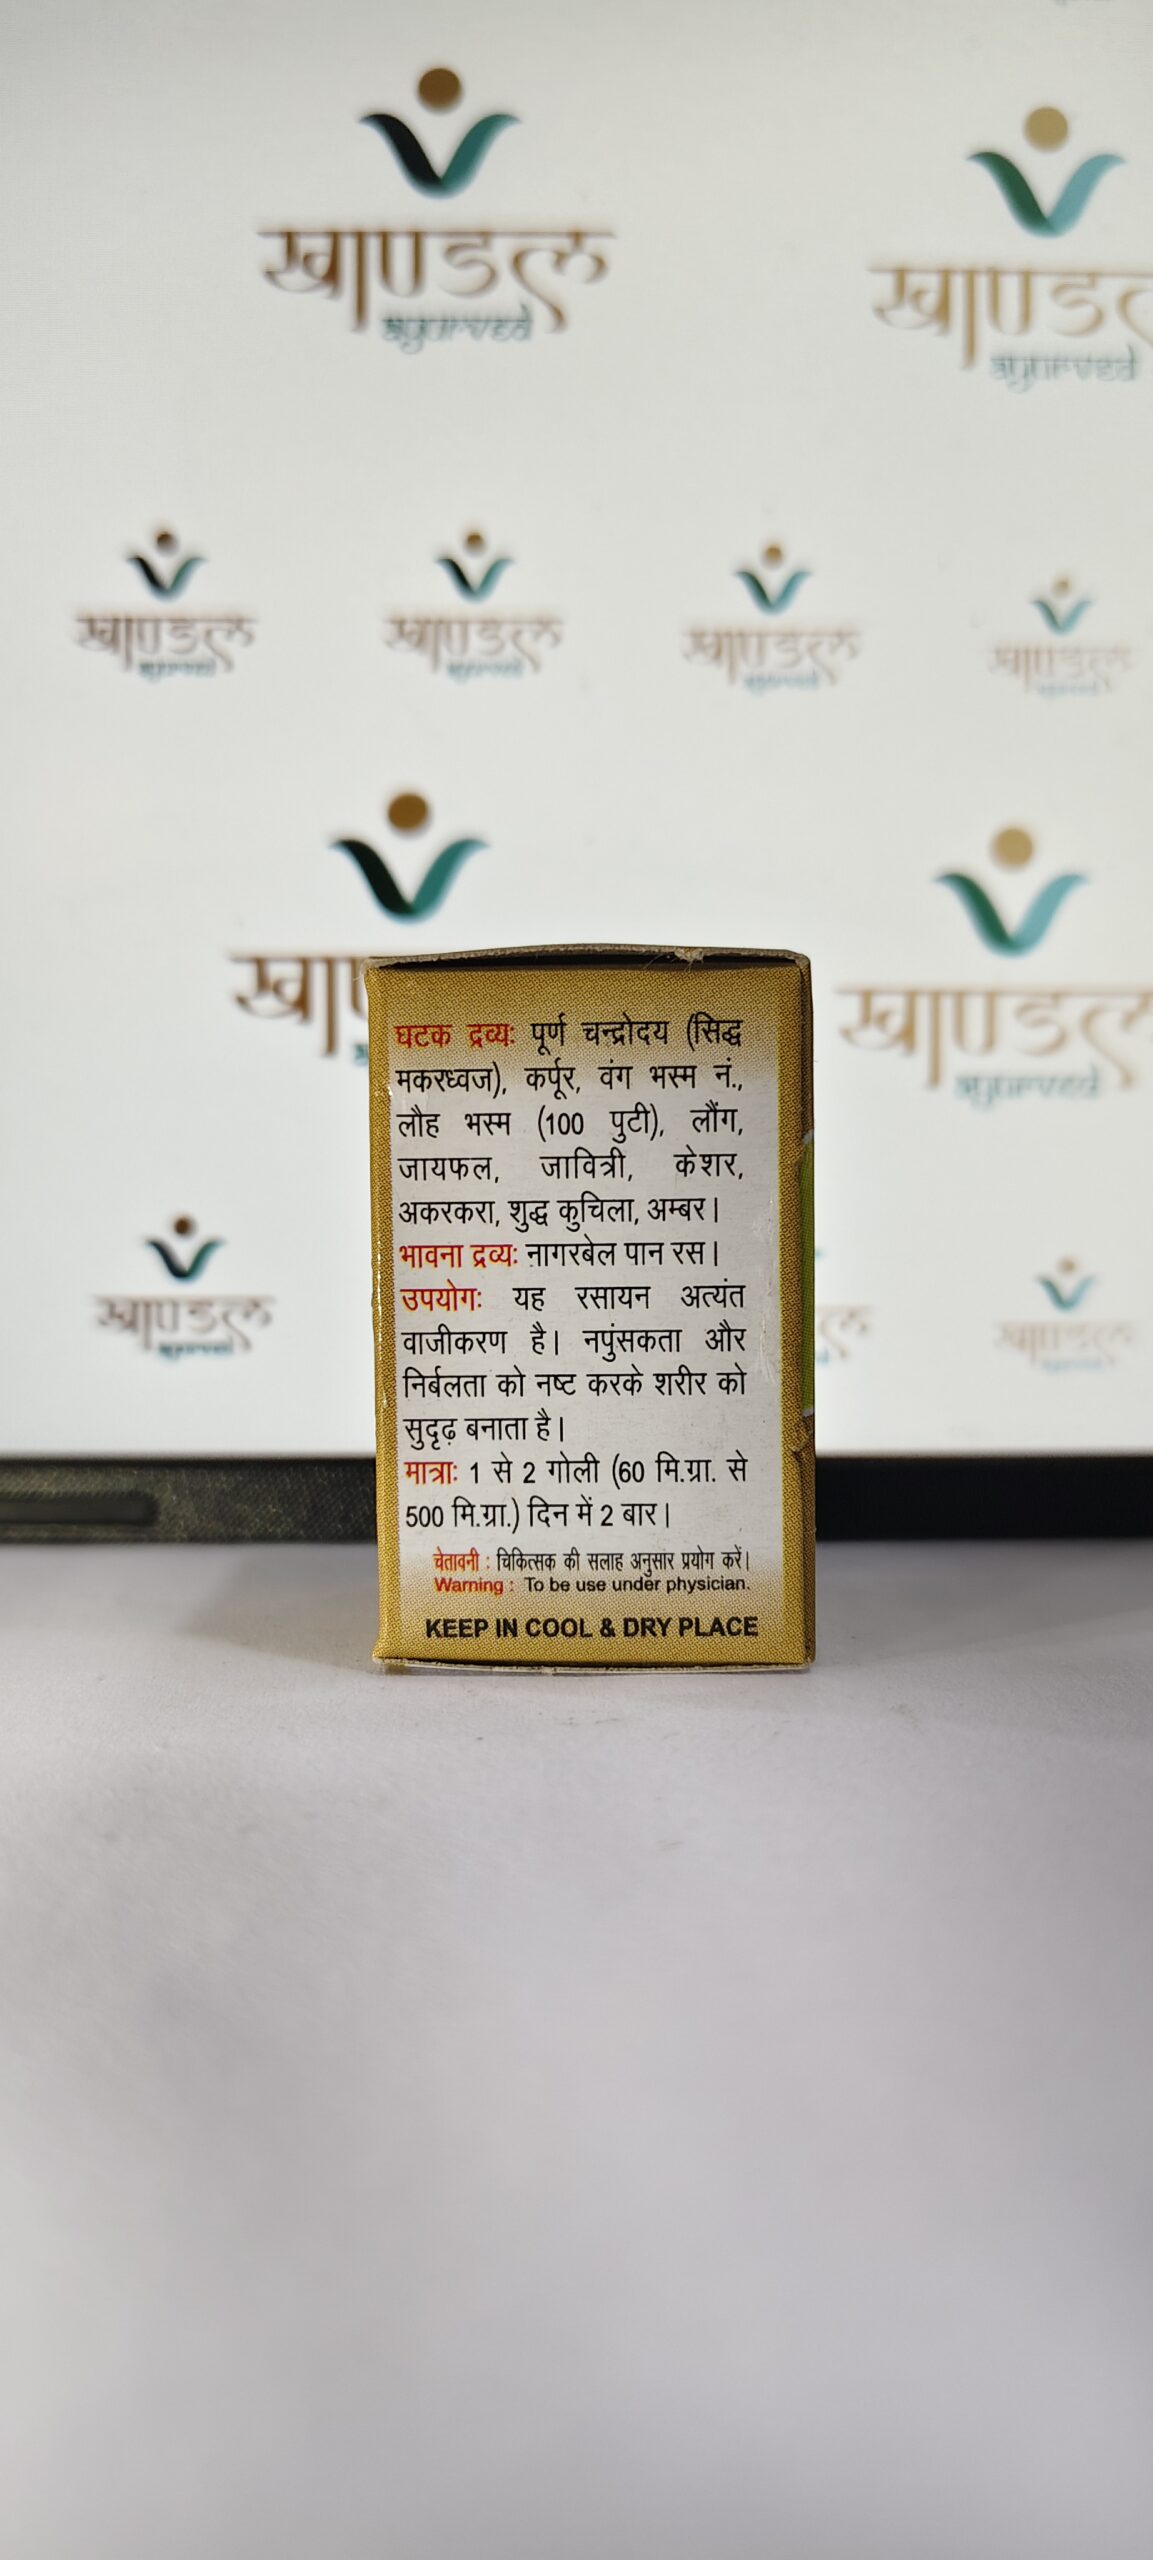 खाण्डल
ayurved
खाण्डल
ayurved
खाण्डल
ayurved
खाण्डल
ayurved
खाण्डल
ayurved
खाण्डल
ayurved
खाण्डल
ayurved
घटक द्रव्यः पूर्ण चन्द्रोदय (सिद्ध
मकरध्वज), कर्पूर, वंग भस्म नं.,
लौह भस्म (100 पुटी), लौंग,
जायफल, जावित्री, केशर,
अकरकरा, शुद्ध कुचिला, अम्बर।
भावना द्रव्यः नागरबेल पान रस।
उपयोगः यह रसायन अत्यंत
वाजीकरण है। नपुंसकता और
निर्बलता को नष्ट करके शरीर को
सुदृढ़ बनाता है।
मात्राः 1 से 2 गोली (60 मि.ग्रा. से
500 मि.ग्रा.) दिन में 2 बार।
चेतावनी : चिकित्सक की सलाह अनुसार प्रयोग करें।
Warning : To be use under physician.
KEEP IN COOL & DRY PLACE
खाण्डल
ayurved
खाण्डल
ayurved